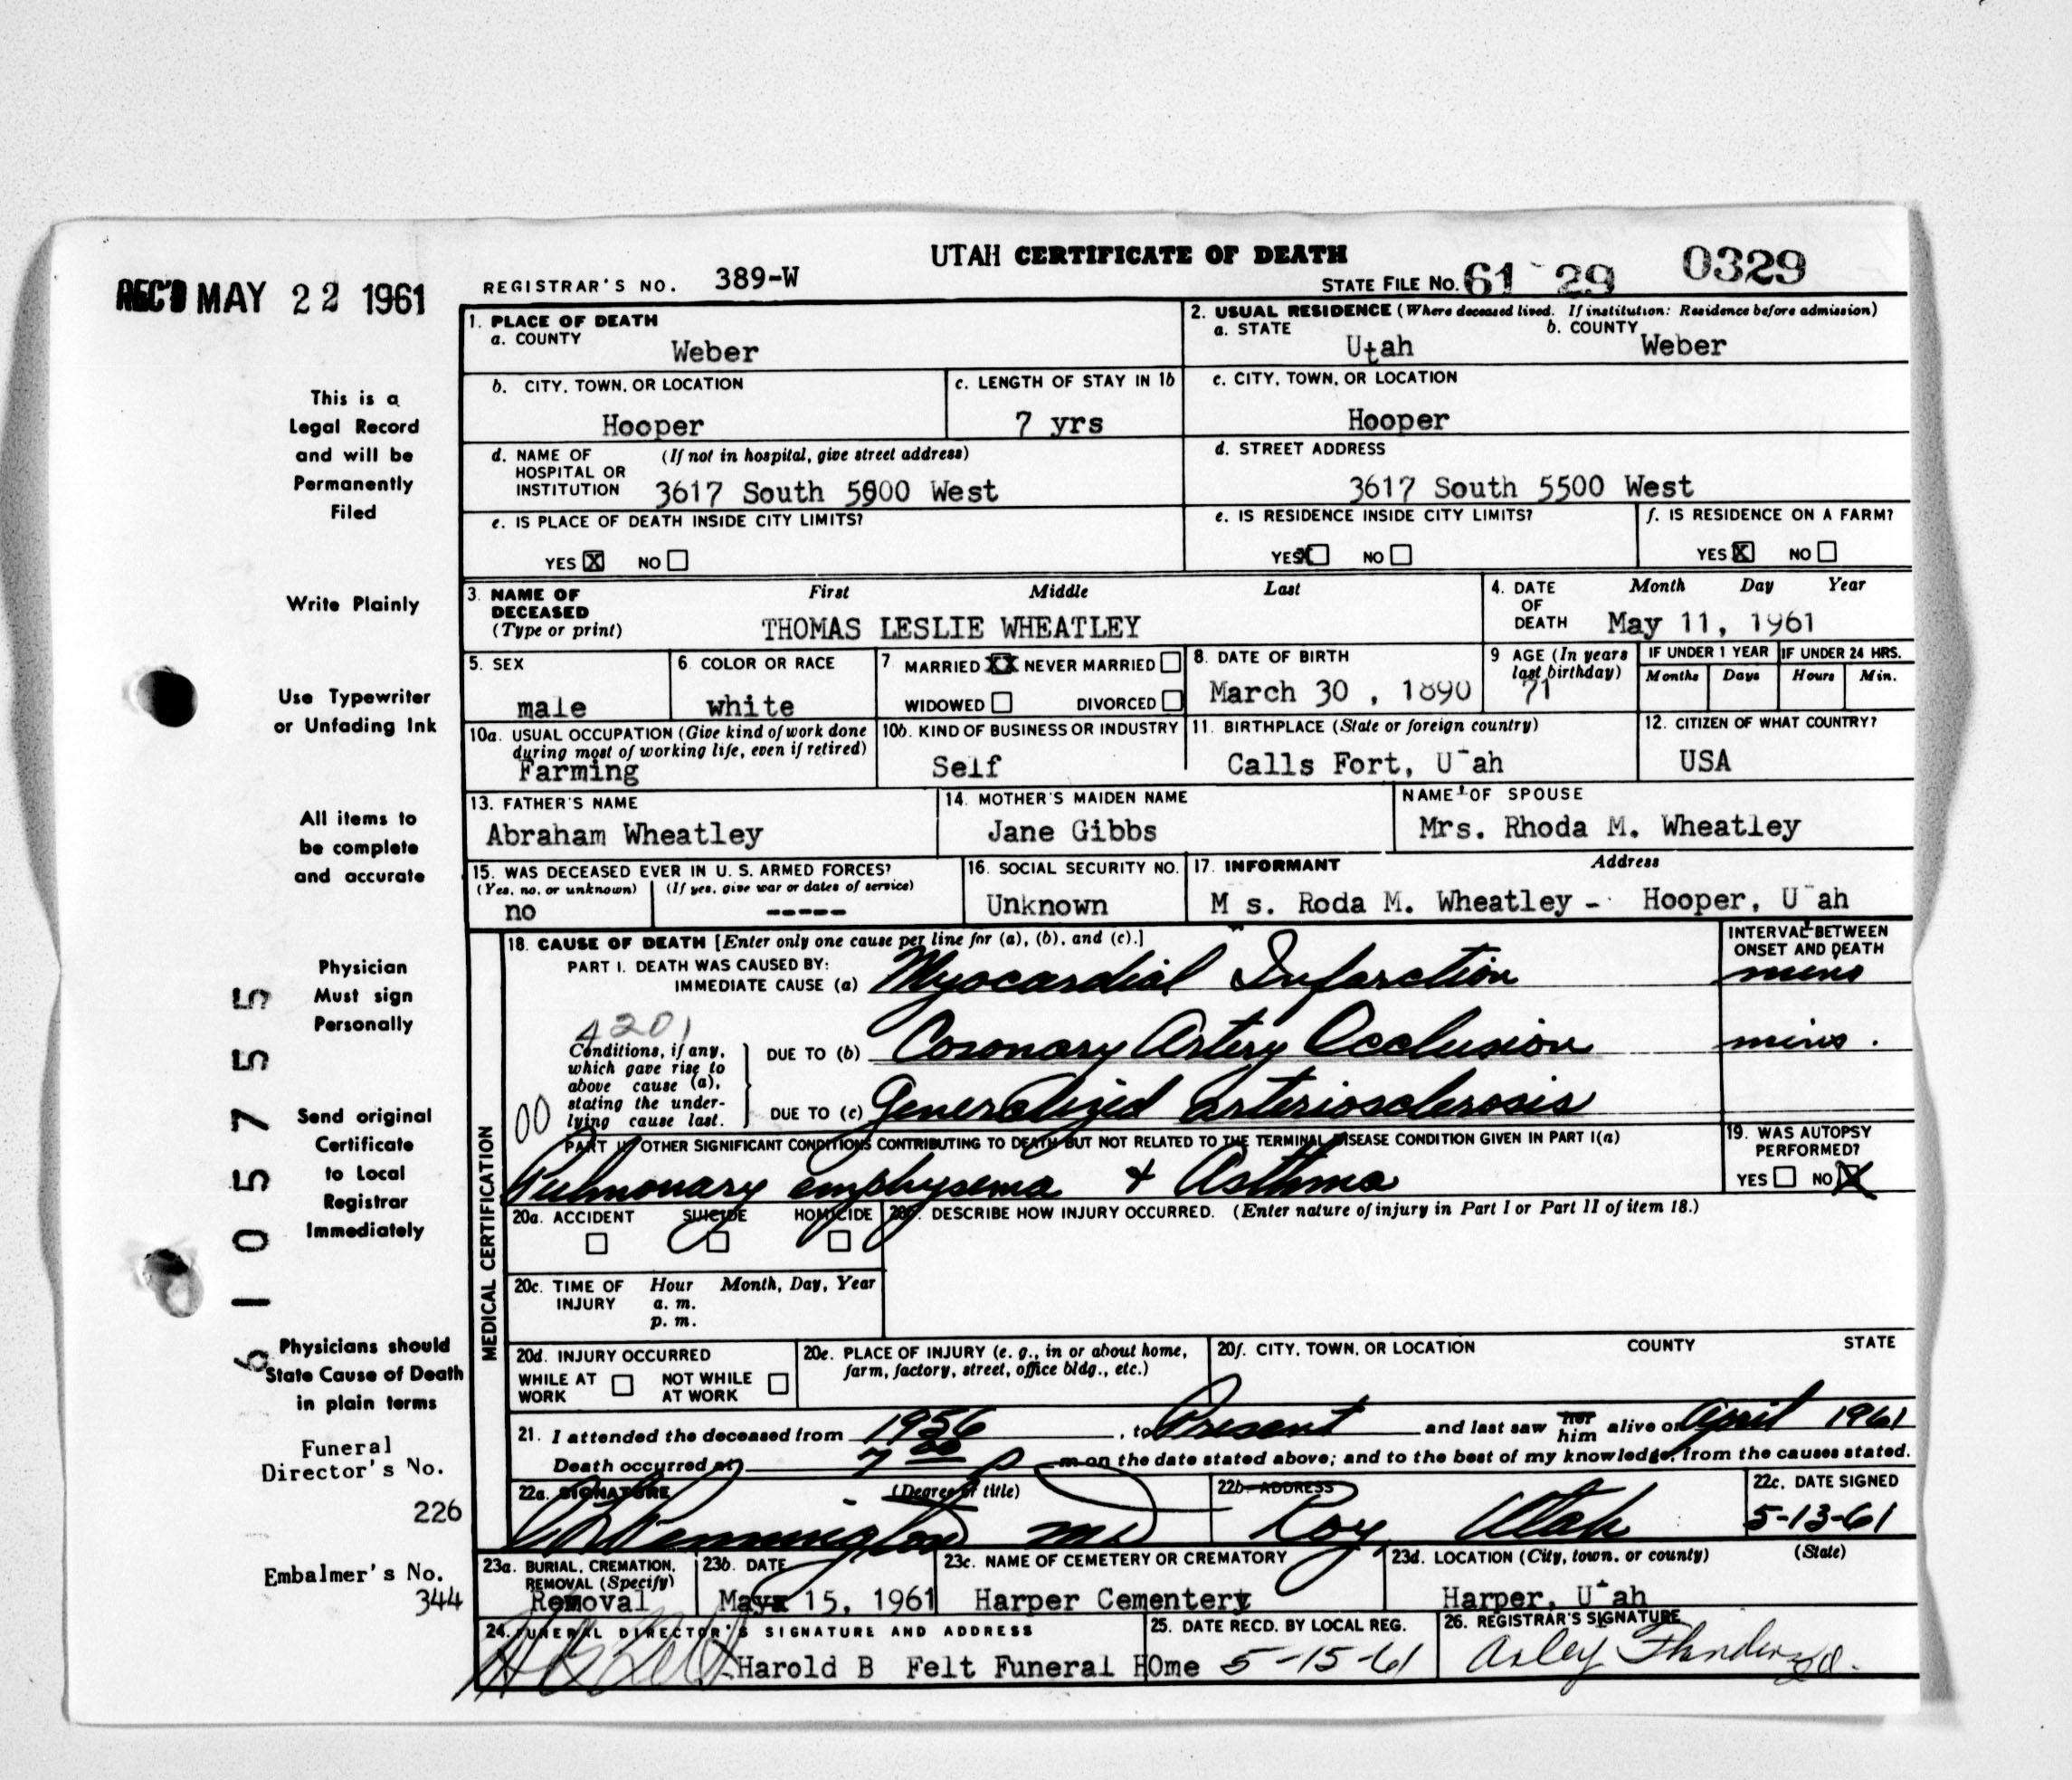 UTAH CERTIFICATE OF DEATH
REC'D MAY 22 1961
REGISTRAR'S NO. 389-W
STATE FILE No. 61 29 0329
1. PLACE OF DEATH
a. COUNTY
Weber
2. USUAL RESIDENCE (Where deceased lived. If institution: Residence before admission)
a. STATE b. COUNTY
Utah Weber
b. CITY, TOWN, OR LOCATION
Hooper
c. LENGTH OF STAY IN 1b
7 yrs
c. CITY, TOWN, OR LOCATION
Hooper
d. NAME OF (If not in hospital, give street address)
HOSPITAL OR
INSTITUTION 3617 South 5900 West
d. STREET ADDRESS
3617 South 5500 West
e. IS PLACE OF DEATH INSIDE CITY LIMITS?
YES X NO
e. IS RESIDENCE INSIDE CITY LIMITS?
YES X NO
f. IS RESIDENCE ON A FARM?
YES X NO
3. NAME OF First Middle Last
DECEASED
(Type or print) THOMAS LESLIE WHEATLEY
4. DATE Month Day Year
OF
DEATH May 11, 1961
5. SEX
male
6. COLOR OR RACE
white
7. MARRIED XX NEVER MARRIED
WIDOWED DIVORCED
8. DATE OF BIRTH
March 30 , 1890
9 AGE (In years
last birthday)
71
IF UNDER 1 YEAR IF UNDER 24 HRS.
Months Days Hours Min.
10a. USUAL OCCUPATION (Give kind of work done
during most of working life, even if retired)
Farming
10b. KIND OF BUSINESS OR INDUSTRY
Self
11. BIRTHPLACE (State or foreign country)
Calls Fort, Utah
12. CITIZEN OF WHAT COUNTRY?
USA
13. FATHER'S NAME
Abraham Wheatley
14. MOTHER'S MAIDEN NAME
Jane Gibbs
NAME OF SPOUSE
Mrs. Rhoda M. Wheatley
15. WAS DECEASED EVER IN U. S. ARMED FORCES?
(Yes, no, or unknown) (If yes, give war or dates of service)
no -----
16. SOCIAL SECURITY NO.
Unknown
17. INFORMANT Address
M s. Roda M. Wheatley - Hooper, Utah
MEDICAL CERTIFICATION
18. CAUSE OF DEATH [Enter only one cause per line for (a), (b), and (c).]
INTERVAL BETWEEN
ONSET AND DEATH
PART I. DEATH WAS CAUSED BY:
IMMEDIATE CAUSE (a) Myocardial Infarction mins
4201
Conditions, if any,
which gave rise to
above cause (a),
stating the under-
lying cause last.
00
DUE TO (b) Coronary Artery Occlusion mins.
DUE TO (c) Generalized arteriosclerosis
PART II. OTHER SIGNIFICANT CONDITIONS CONTRIBUTING TO DEATH BUT NOT RELATED TO THE TERMINAL DISEASE CONDITION GIVEN IN PART I(a)
Pulmonary emphysema + Asthma
19. WAS AUTOPSY
PERFORMED?
YES NO X
20a. ACCIDENT SUICIDE HOMICIDE
20b. DESCRIBE HOW INJURY OCCURRED. (Enter nature of injury in Part I or Part II of item 18.)
20c. TIME OF Hour Month, Day, Year
INJURY a. m.
p. m.
20d. INJURY OCCURRED
WHILE AT NOT WHILE
WORK AT WORK
20e. PLACE OF INJURY (e. g., in or about home,
farm, factory, street, office bldg., etc.)
20f. CITY, TOWN, OR LOCATION COUNTY STATE
21. I attended the deceased from 1956, to Present and last saw her him alive on April 1961
Death occurred at 7 00 P m on the date stated above; and to the best of my knowledge, from the causes stated.
22a. SIGNATURE (Degree or title)
Pennington MD
22b. ADDRESS
Roy, Utah
22c. DATE SIGNED
5-13-61
23a. BURIAL, CREMATION,
REMOVAL (Specify)
Removal
23b. DATE
May 15, 1961
23c. NAME OF CEMETERY OR CREMATORY
Harper Cementery
23d. LOCATION (City, town, or county) (State)
Harper, Utah
24. FUNERAL DIRECTOR'S SIGNATURE AND ADDRESS
H B Felt - Harold B Felt Funeral HOme
25. DATE RECD. BY LOCAL REG.
5-15-61
26. REGISTRAR'S SIGNATURE
This is a
Legal Record
and will be
Permanently
Filed
Write Plainly
Use Typewriter
or Unfading Ink
All items to
be complete
and accurate
Physician
Must sign
Personally
Send original
Certificate
to Local
Registrar
Immediately
Physicians should
State Cause of Death
in plain terms
Funeral
Director's No.
226
Embalmer's No.
344
61 05755